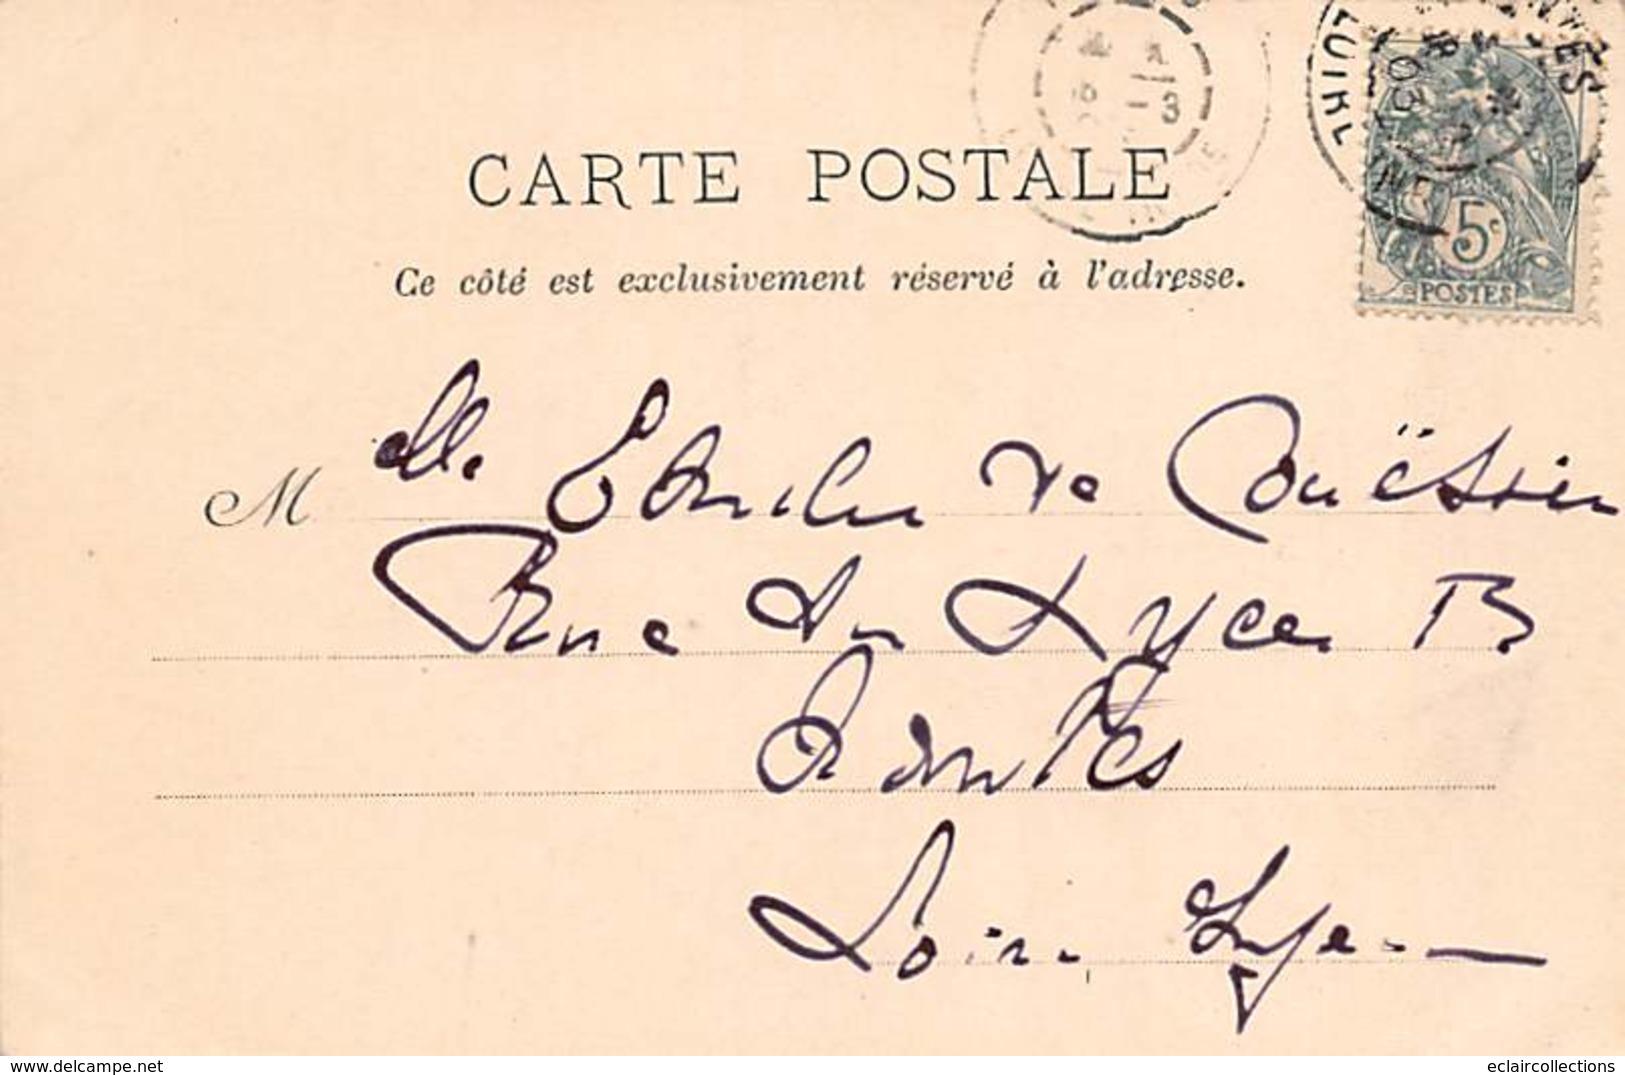 THIOT
03
5c
POSTES
CARTE POSTALE
Ce côté est exclusivement réservé à l'adresse.
M elle de Couëssin
Rue du Lycée 13
Nantes
Loire Infre
eclaircollections
www.delcampe.net